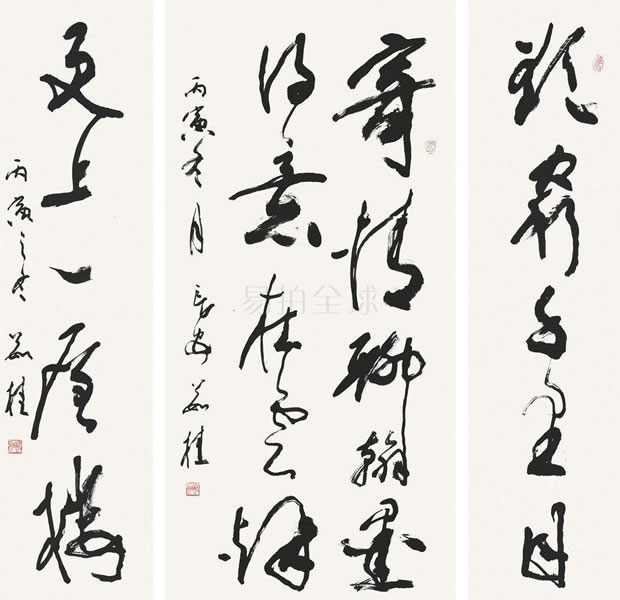 欲窮千里目
寄情聊翰墨
得意在雲烟
丙寅冬月 長安 茹桂
更上一層樓
丙寅之冬 茹桂
易拍全球